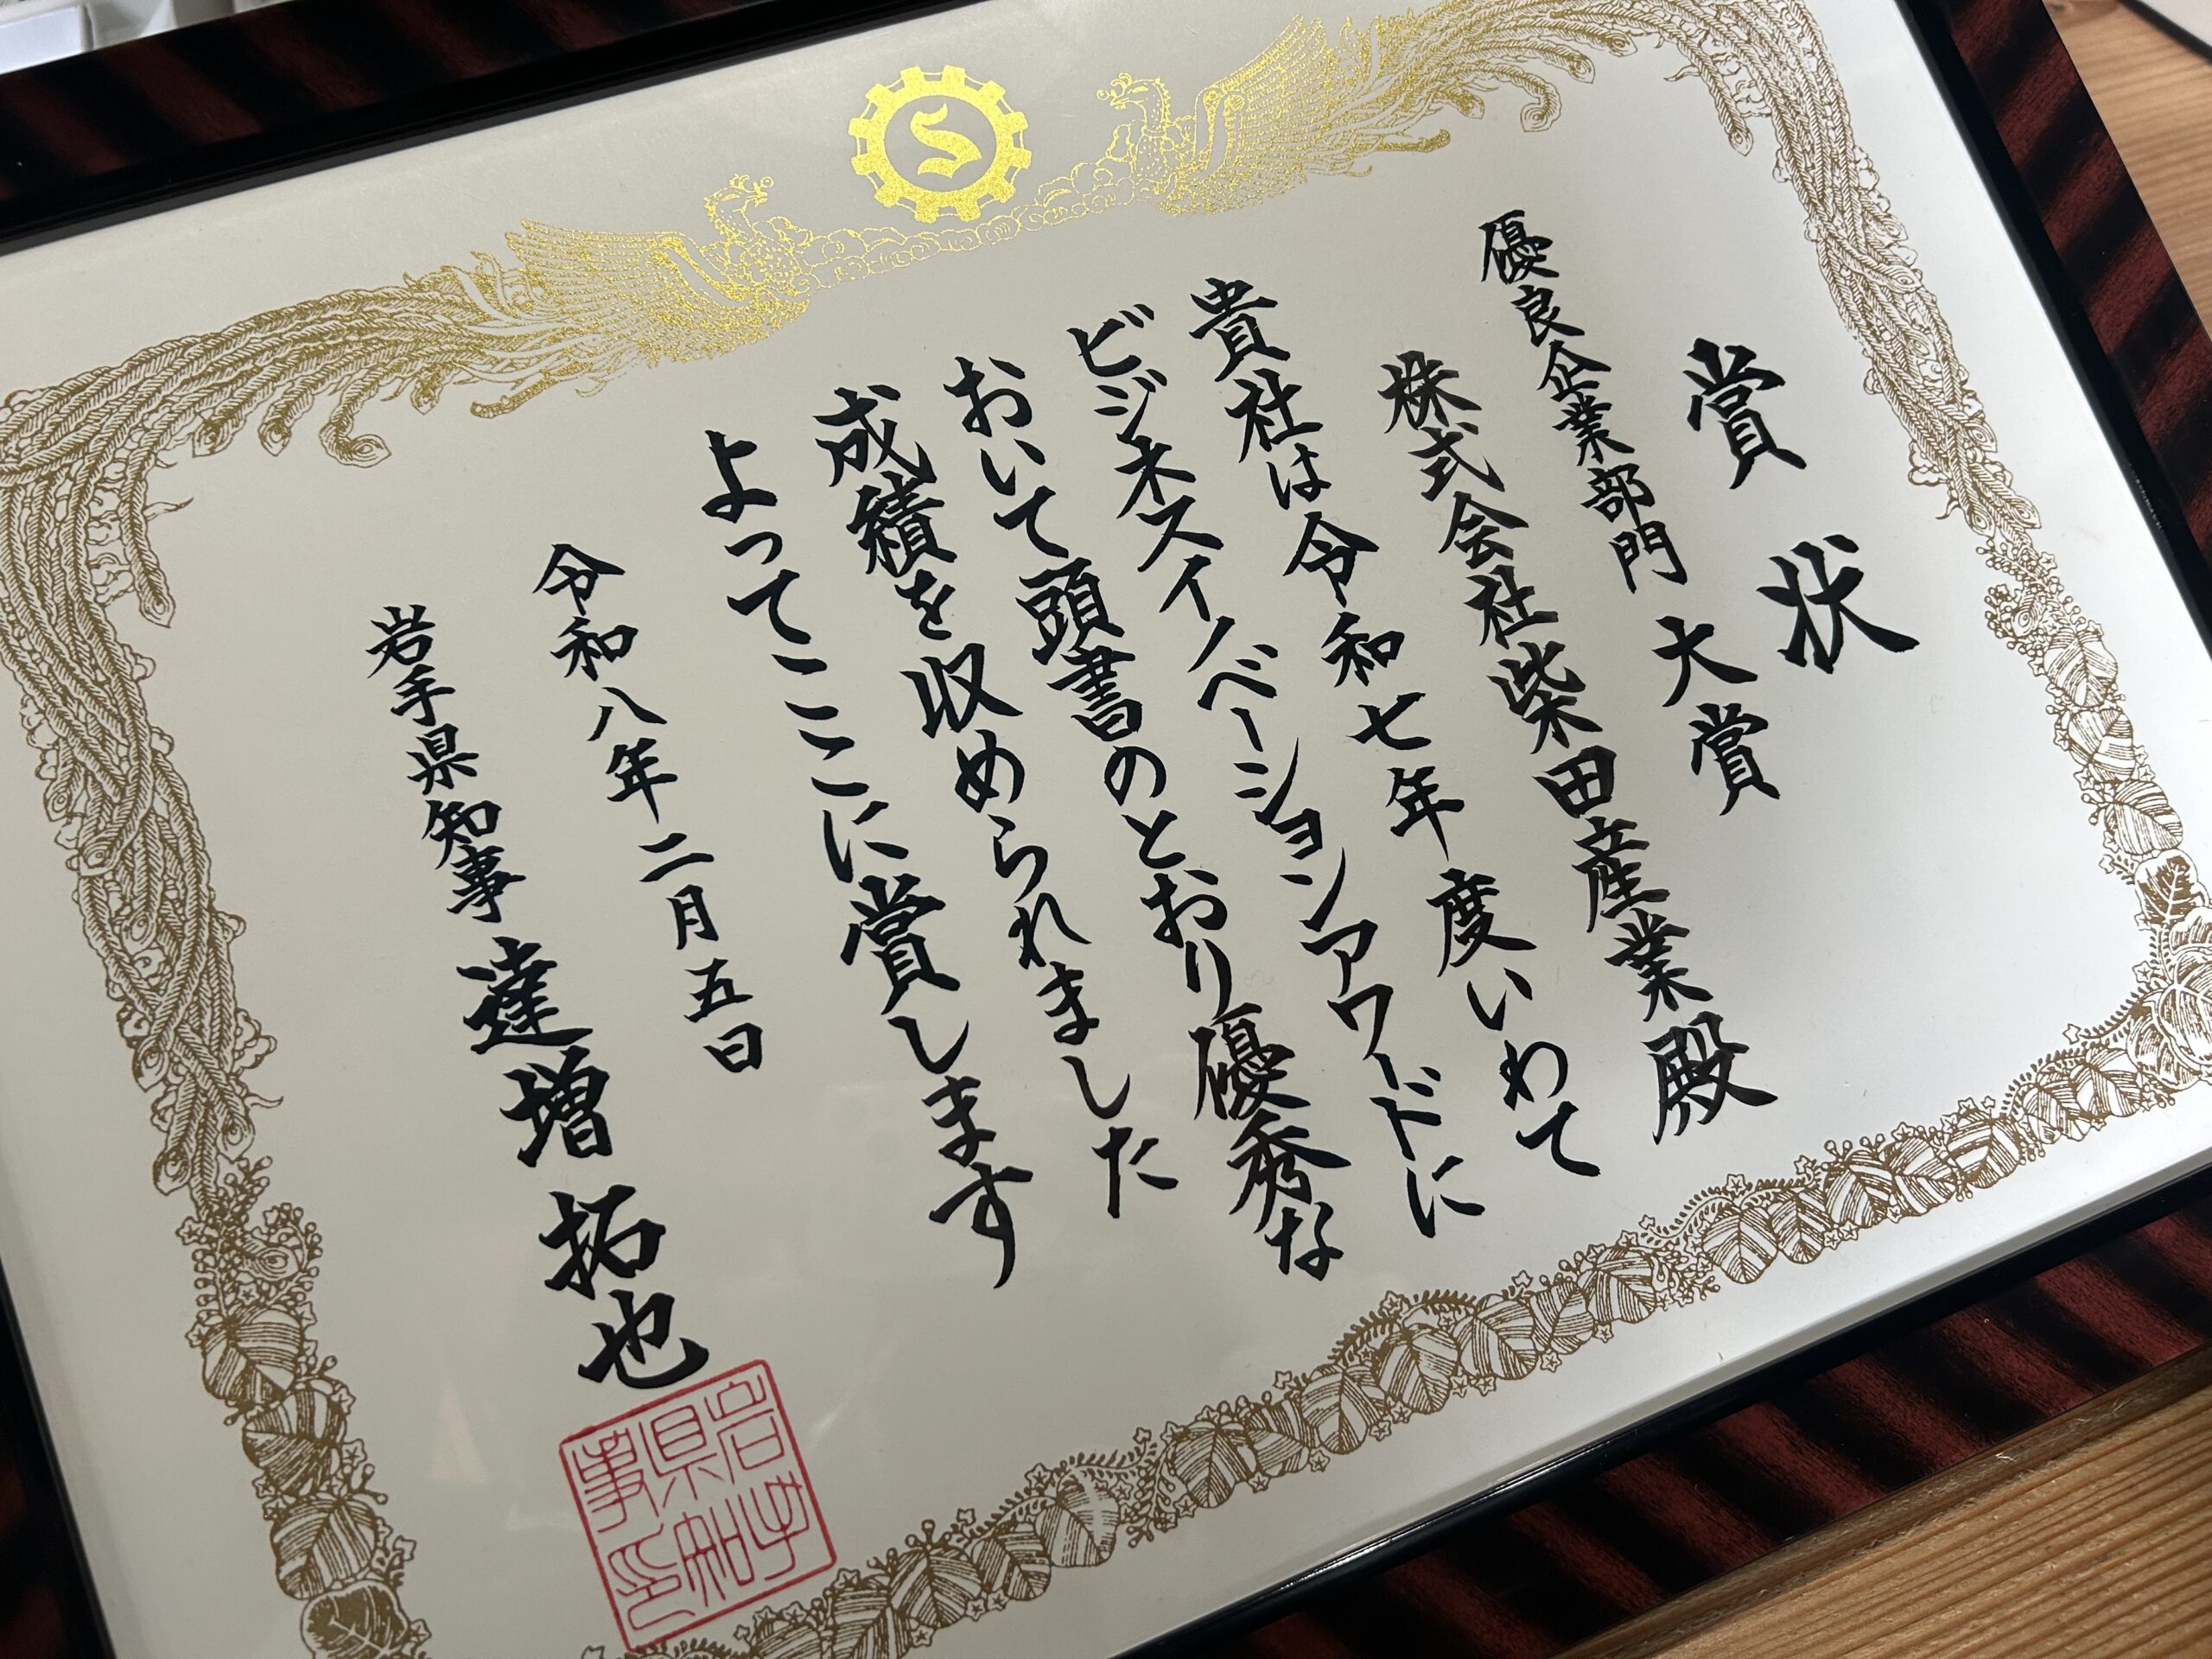 賞状
優良企業部門 大賞
株式会社柴田産業殿
貴社は令和七年度いわて
ビジネスイノベーションアワードに
おいて頭書のとおり優秀な
成績を収められました
よってここに賞します
令和八年二月五日
岩手県知事 達増拓也
岩手県知事印
S